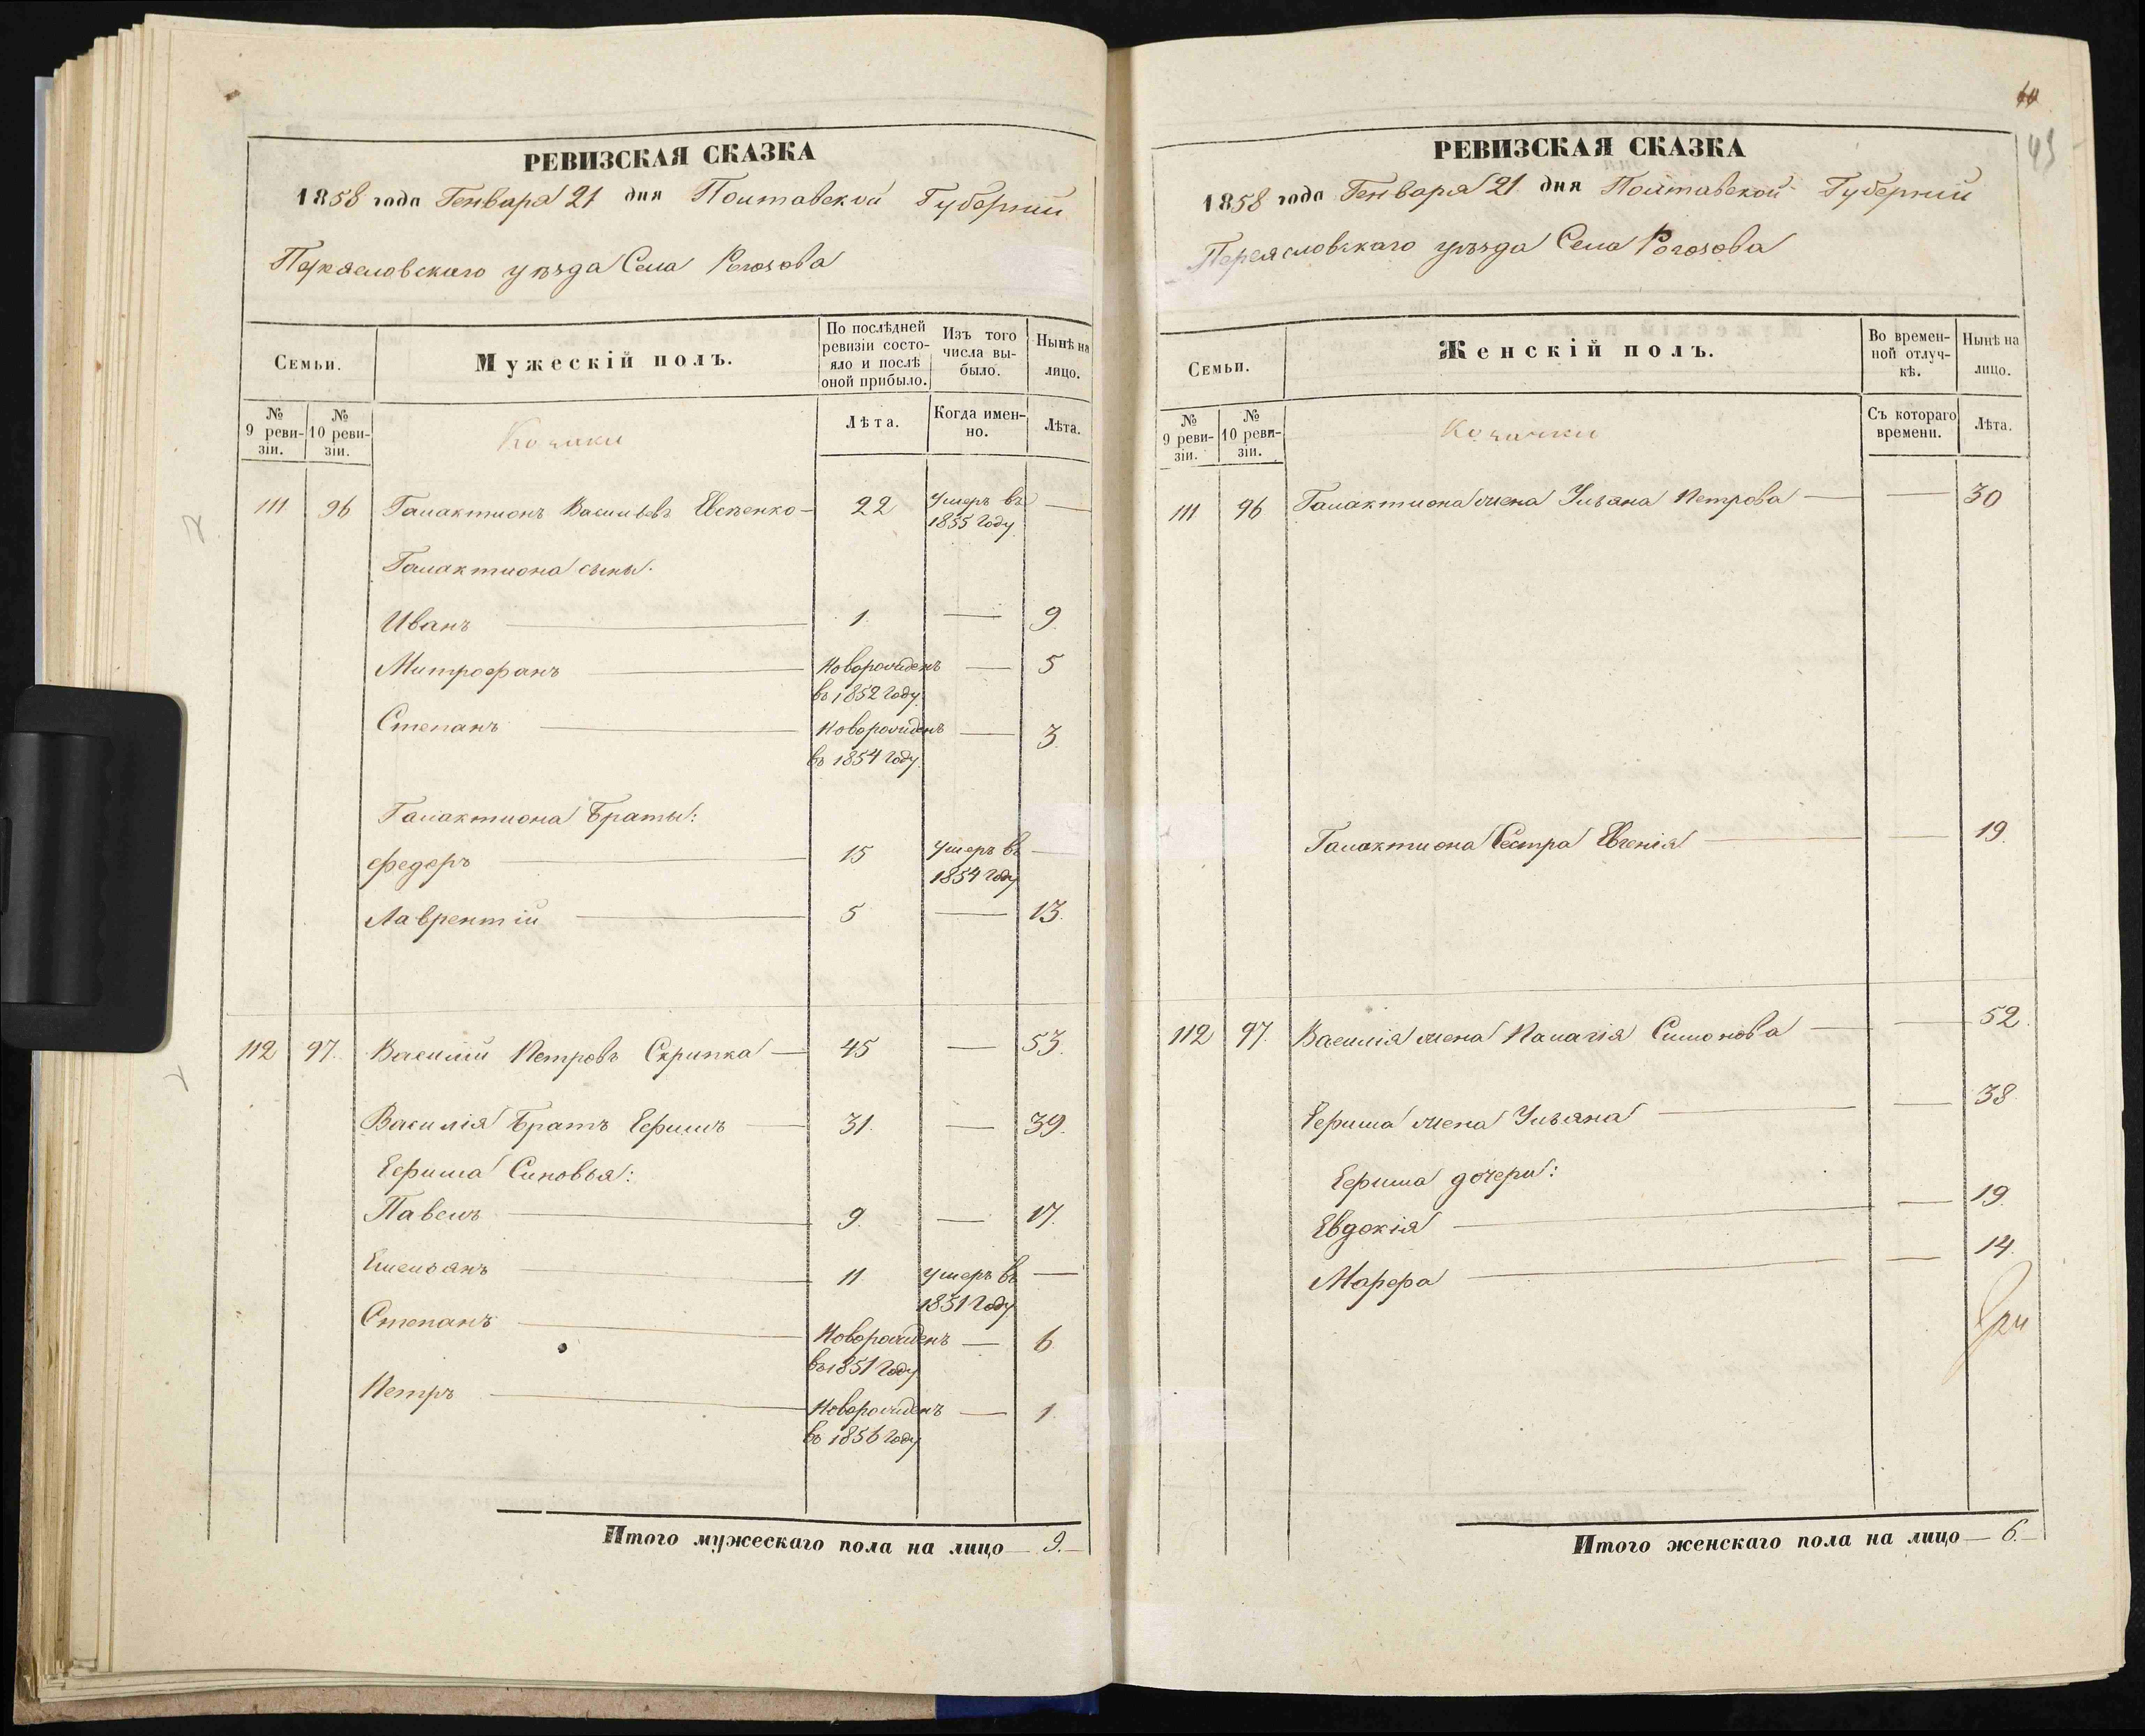 РЕВИЗСКАЯ СКАЗКА
1858 года Генваря 21 дня Полтавской Губернии
Переясловского уезда Села Рогозова
Семьи.
Мужескій полъ.
По послѣдней ревизіи состо-яло и послѣ оной прибыло.
Изъ того числа вы-было.
Нынѣ на лицо.
№ 9 реви-зіи.
№ 10 реви-зіи.
Козаки
Лѣта.
Когда имен-но.
Лѣта.
111 96 Галактионъ Васильевъ Евсѣенко — 22 умеръ въ 1855 году —
Галактиона сыны.
Иванъ — 1. — 9.
Митрофанъ — Новорожденъ въ 1852 году. — 5
Степанъ — Новорожденъ въ 1854 году. — 3.
Галактиона Браты:
Федоръ — 15 умеръ въ 1854 году —
Лаврентій — 5 — 13.
112 97. Василій Петровъ Скрипка — 45 — 53.
Василія Братъ Ефимъ — 31. — 39.
Ефима Сыновья:
Павелъ — 9. — 17.
Емельянъ — 11 умеръ въ 1851 году —
Степанъ — Новорожденъ въ 1851 году — 6
Петръ — Новорожденъ въ 1856 году — 1.
Итого мужескаго пола на лицо — 9. —
43
РЕВИЗСКАЯ СКАЗКА
1858 года Генваря 21 дня Полтавской Губернии
Переясловскаго уѣзда Села Рогозова
Семьи.
Женскій полъ.
Во времен-ной отлуч-кѣ.
Нынѣ на лицо.
№ 9 реви-зіи.
№ 10 реви-зіи.
Козачки
Съ котораго времени.
Лѣта.
111 96 Галактиона жена Ульяна Петрова — — 30
Галактиона Сестра Евгенія — — 19.
112 97. Василія жена Палагія Симонова — — 52.
Ефима жена Ульяна — — 38
Ефима дочери:
Евдокія — — 19.
Марфа — — 14.
Итого женскаго пола на лицо — 6. —